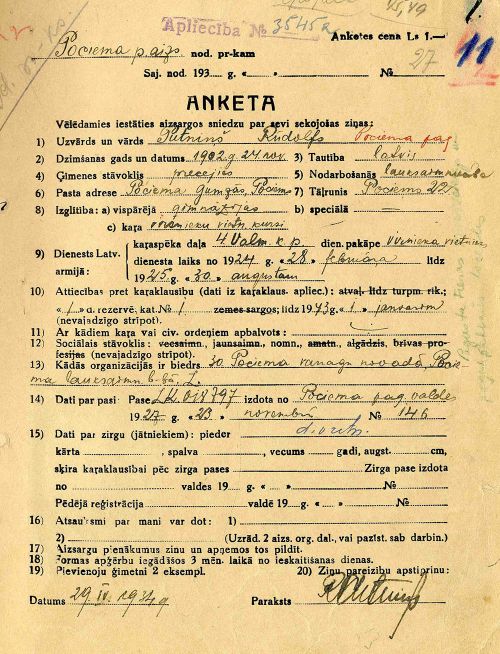 Apliecība № 3545
45,49
Anketes cena Ls 1.—
Pociema p. aizs nod. pr-kam
Saj. nod. 193 g. « » № 27
11
ANKETA
Vēlēdamies iestāties aizsargos sniedzu par sevi sekojošas ziņas:
1) Uzvārds un vārds Putniņš Rūdolfs Pociema pag
2) Dzimšanas gads un datums 1902 g. 24 nov. 3) Tautība latvis
4) Ģimenes stāvoklis precejies 5) Nodarbošanās
6) Pasta adrese Pociema Pociems 7) Tāļrunis Pociems 22
8) Izglītība: a) vispārējā ģimnāzijas b) speciālā
c) kaŗa kursi
9) Dienests Latv. armijā:
kaŗaspēka daļa 4. Valm. k. p. dien. pakāpe
dienesta laiks no 1924 g. « 28 » februāra līdz
1925 g. « 30 » augustam
10) Attiecības pret kaŗaklausību (dati iz kaŗaklaus. apliec.): atvaļ. līdz turpm. rīk.;
« 1 » a. rezervē, kat. № 1 zemes sargos; līdz 1943 g. « 1 » janvarim
(nevajadzīgo strīpot).
11) Ar kādiem kaŗa vai civ. ordeņiem apbalvots:
12) Sociālais stāvoklis: vecsaimn., jaunsaimn., nomn., amatn., algādzis, brīvas profesijas (nevajadzīgo strīpot).
13) Kādās organizācijās ir biedrs 30. Pociema vanagu novadā, Pociema lauksaimn. b-bā.
14) Dati par pasi: Pase LL 018797 izdota no Pociema pag. valde
1927 g. « 23 » novembrī № 146
15) Dati par zirgu (jātniekiem): pieder
kārta , spalva , vecums gadi, augst. cm,
šķira kaŗaklausībai pēc zirga pases Zirga pase izdota
no valdes 19 g. « » №
Pēdējā reģistrācija valdē 19 g. « »
16) Atsauksmi par mani var dot: 1)
2) (Uzrād. 2 aizs. org. dal., vai pazīst. sab. darbin.)
17) Aizsargu pienākumus zinu un apņemos tos pildīt.
18) Formas apģērbu iegādāšos 3 mēn. laikā no ieskaitīšanas dienas.
19) Pievienoju ģimetni 2 eksempl. 20) Ziņu pareizību apstiprinu:
Datums 29. IV. 1934 g Paraksts RPutniņš